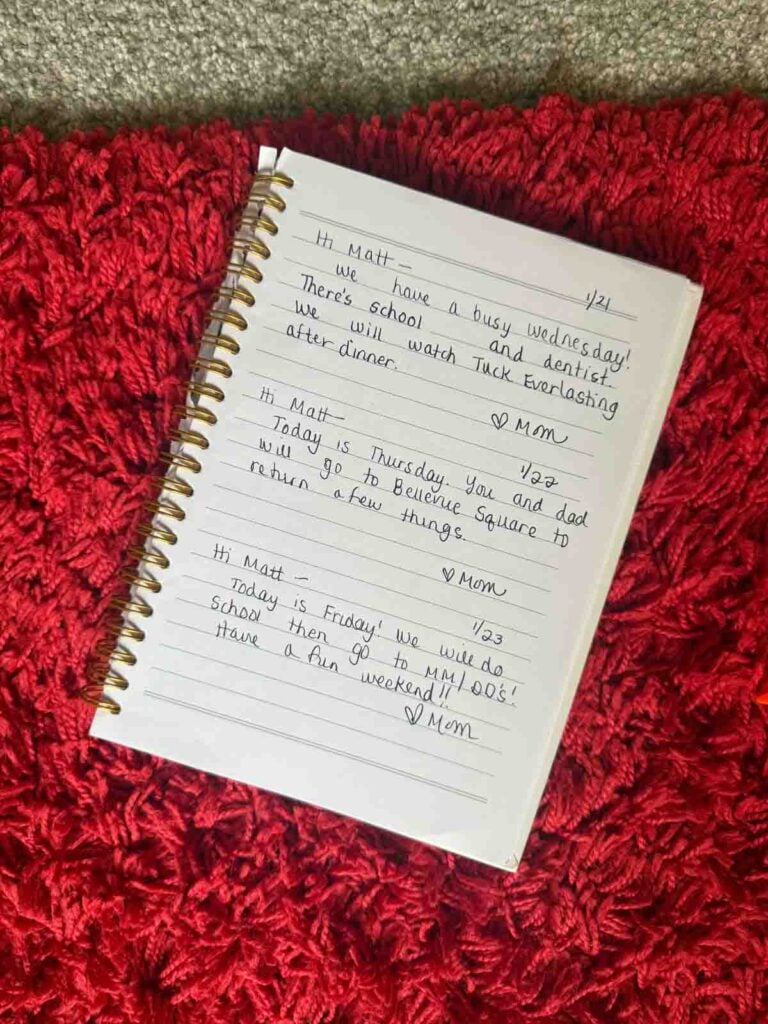 1/21
Hi Matt-
We have a busy Wednesday!
There's school and dentist.
We will watch Tuck Everlasting
after dinner.
♡ Mom
1/22
Hi Matt-
Today is Thursday. You and dad
will go to Bellevue Square to
return a few things.
♡ Mom
1/23
Hi Matt -
Today is Friday! We will do
school then go to MM/DD's!
Have a fun weekend!!
♡ Mom